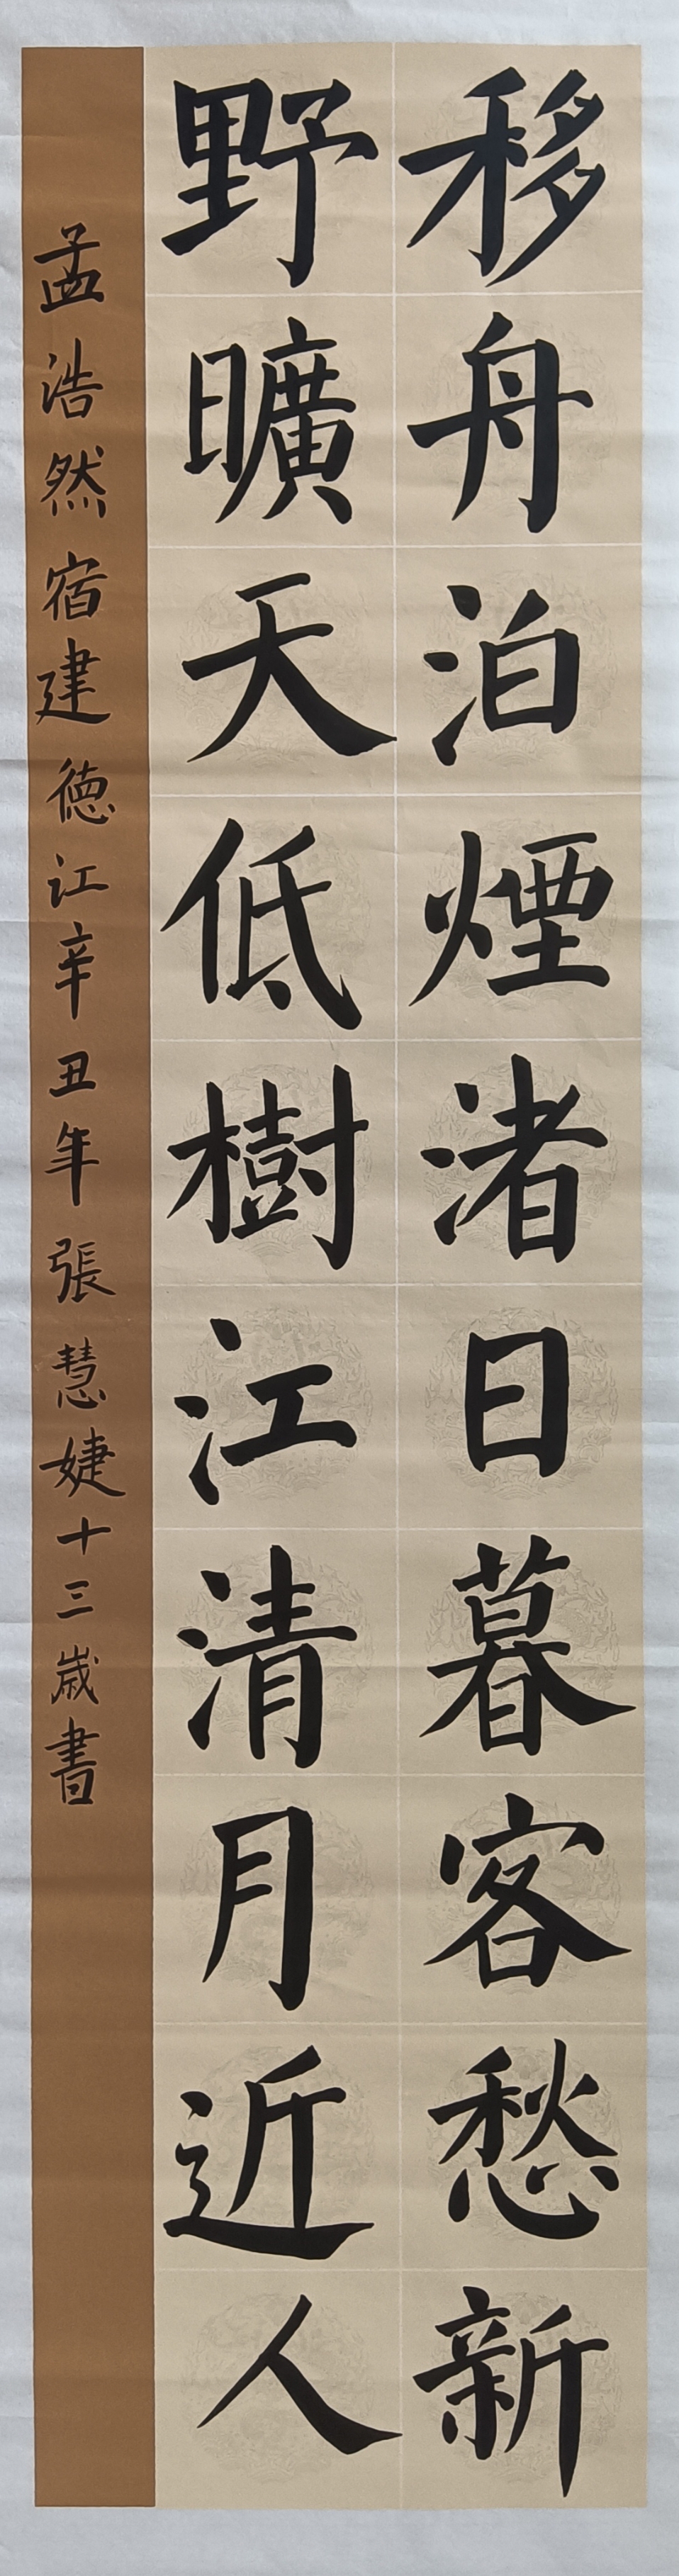 移舟泊煙渚日暮客愁新
野曠天低樹江清月近人
孟浩然宿建德江辛丑年張慧婕十三歲書